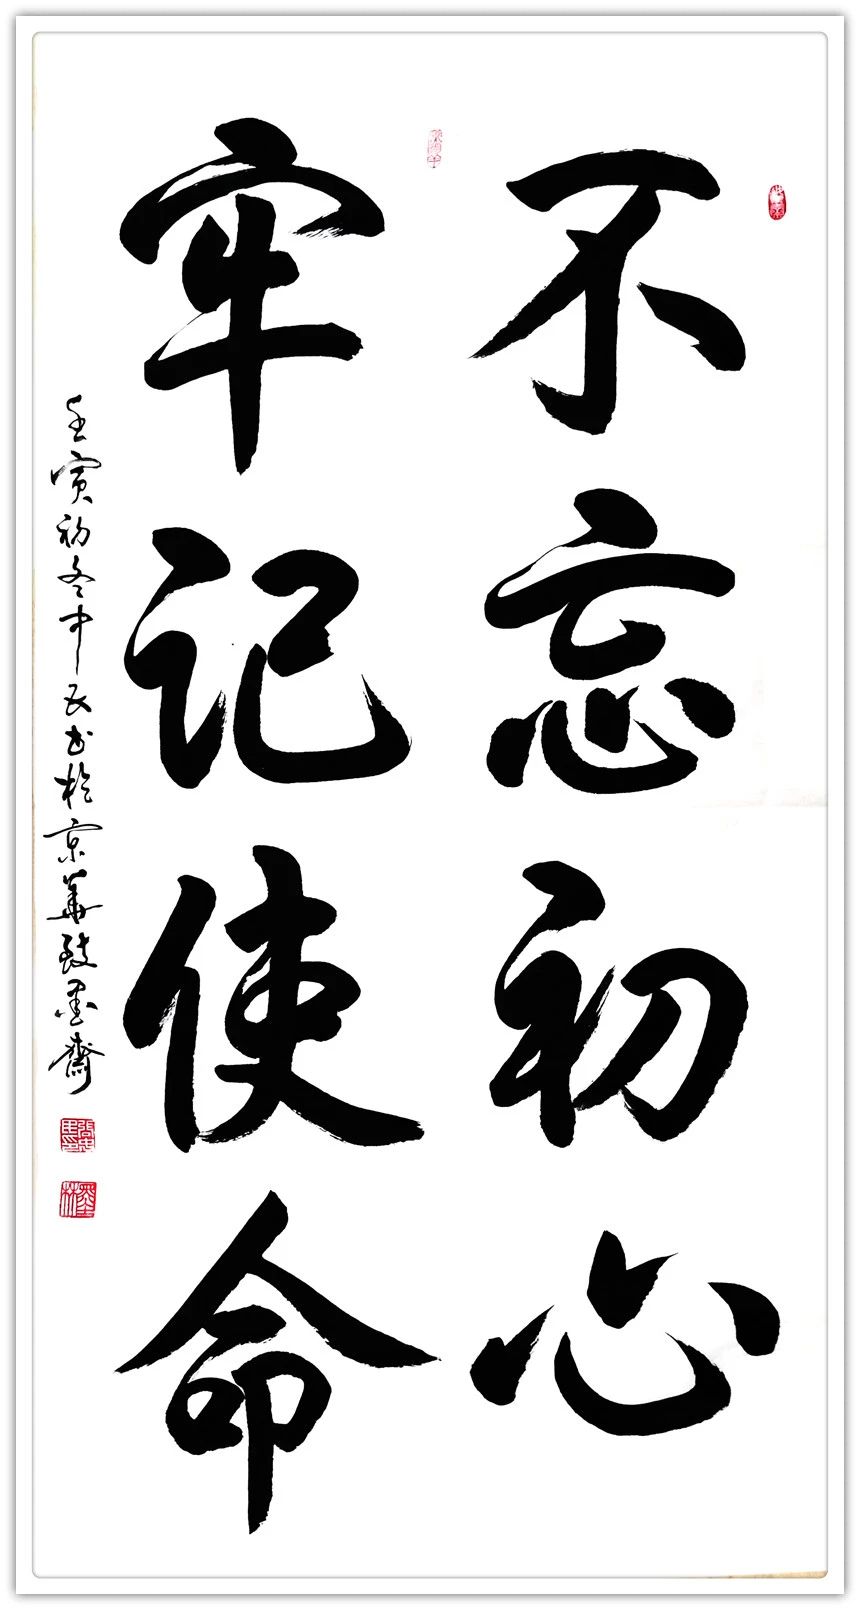 不忘初心
牢记使命
壬寅初冬中民书於京华致墨斋